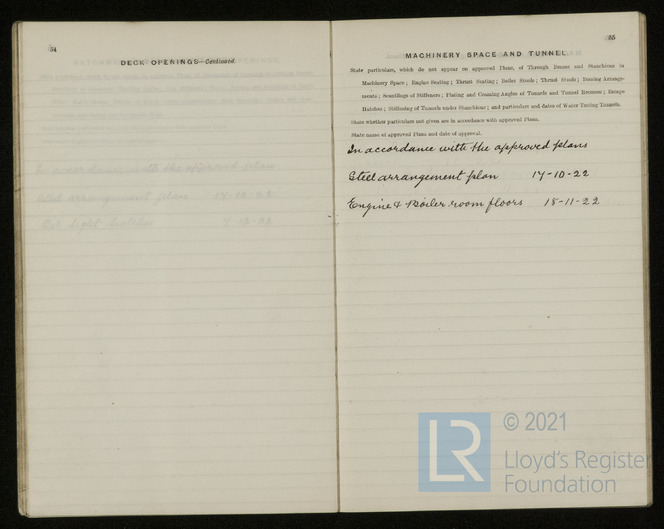 54
DECK OPENINGS—Continued.
55
MACHINERY SPACE AND TUNNEL.
State particulars, which do not appear on approved Plans, of Through Beams and Stanchions in
Machinery Space; Engine Seating; Thrust Seating; Boiler Stools; Thrust Stools; Housing Arrange-
ments; Scantlings of Stiffeners; Plating and Coaming Angles of Tunnels and Tunnel Recesses; Escape
Hatches; Stiffening of Tunnels under Stanchions; and particulars and dates of Water Testing Tunnels.
State whether particulars not given are in accordance with approved Plans.
State name of approved Plans and date of approval.
In accordance with the approved plans
Steel arrangement plan 17-10-22
Engine & Boiler room floors 18-11-22
LR © 2021
Lloyd's Register
Foundation